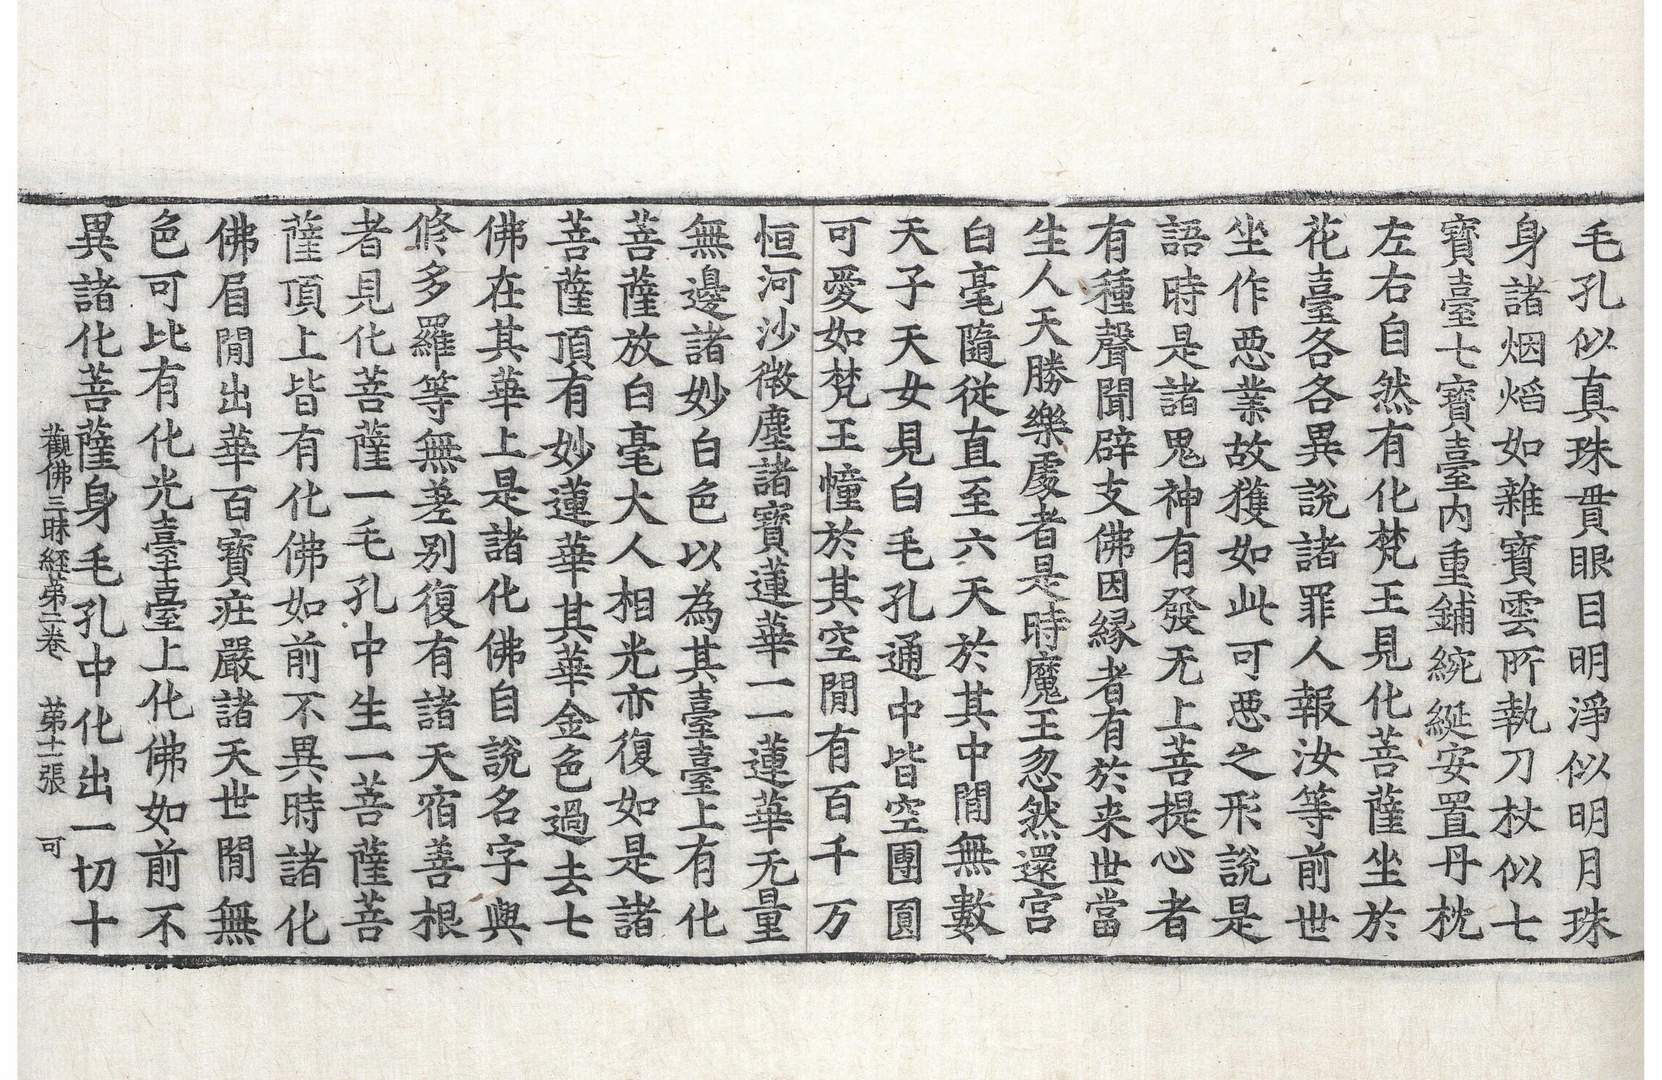 毛孔似真珠貫眼目明淨似明月珠
身諸烟焰如雜寶雲所執刀杖似七
寶臺七寶臺内重鋪綩綖安置丹枕
左右自然有化梵王見化菩薩坐於
花臺各各異說諸罪人報汝等前世
坐作惡業故獲如此可惡之形說是
語時是諸鬼神有發无上菩提心者
有種聲聞辟支佛因縁者有於来世當
生人天勝樂處者是時魔王忽然還宫
白毫隨從直至六天於其中間無數
天子天女見白毛孔通中皆空團圓
可愛如梵王幢於其空間有百千万
恒河沙微塵諸寶蓮華一一蓮華无量
無邊諸妙白色以為其臺臺上有化
菩薩放白毫大人相光亦復如是諸
菩薩頂有妙蓮華其華金色過去七
佛在其華上是諸化佛自說名字與
修多羅等無差别復有諸天宿善根
者見化菩薩一毛孔中生一菩薩菩
薩頂上皆有化佛如前不異時諸化
佛眉間出華百寶疰嚴諸天世間無
色可比有化光臺臺上化佛如前不
異諸化菩薩身毛孔中化出一切十
觀佛三昧経苐二卷 苐十一張 可